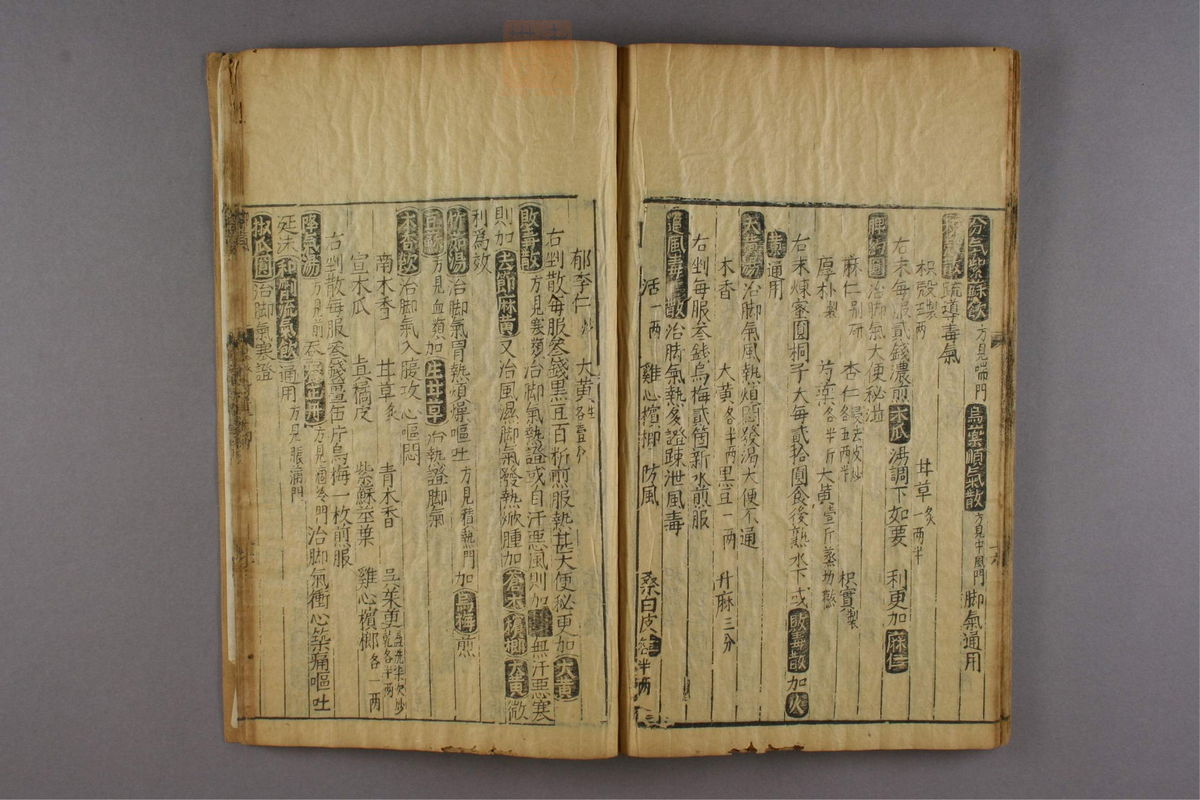 分氣紫蘇飲 方見喘門 烏藥順氣散 方見中風門 脚氣通用
散疏導毒氣
枳殼製五兩 甘草炙一兩半
右末每服貳錢濃煎木瓜湯調下如要 利更加麻仁
脾約圓治脚氣大便秘澁
麻仁別研 杏仁去皮炒各五兩半 枳實製
厚朴製 芍藥各半斤 大黃壹斤蒸焙
右末煉蜜圓桐子大每貳拾圓食後熟水下或敗毒散加大
黃通用
大黃湯治脚氣風熱煩悶發渴大便不通
木香 大黃各半兩 黑豆一兩 升麻三分
右剉每服叁錢烏梅貳箇新水煎服
追風毒散治脚氣熱多證疎泄風毒
活一兩 雞心檳榔 防風 桑白皮各半兩
郁李仁炒 大黃生各壹分
右剉散每服叁錢黑豆百粒煎服熱甚大便秘更加大黃
敗毒散方見寒類治脚氣熱證或自汗惡風則加 無汗惡寒
則加去節麻黃又治風濕脚氣發熱焮腫加蒼朮檳榔大黃微
利為效
竹茹湯治脚氣胃熱煩燥嘔吐方見積熱門加烏梅煎
五 方見血類加生甘草治熱證脚氣
木香飲治脚氣入腹攻心嘔悶
南木香 甘草炙 青木香 吳茱萸
宣木瓜 真橘皮 紫蘇莖葉 雞心檳榔各一兩
右剉散每服叁錢薑伍片烏梅一枚煎服
降氣湯方見 方見痼冷門治脚氣衝心築痛嘔吐
涎沫和劑流氣飲通用方見脹滿門
椒瓜圓治脚氣寒證